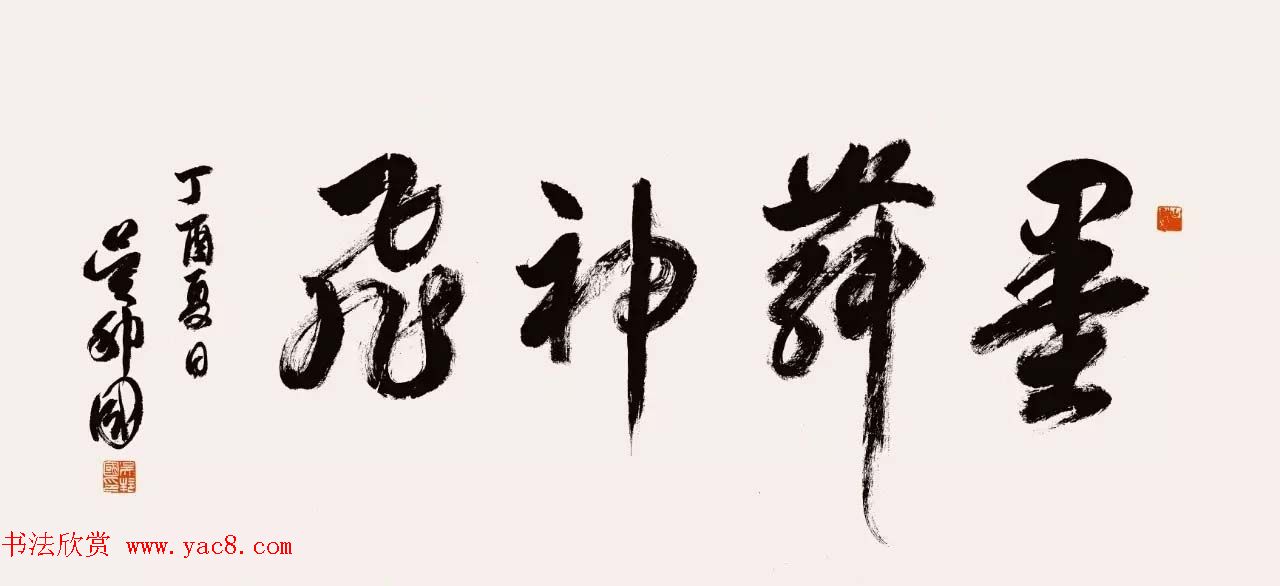 墨舞神飛
丁酉夏日
吴邦國
书法欣赏 www.yac8.com